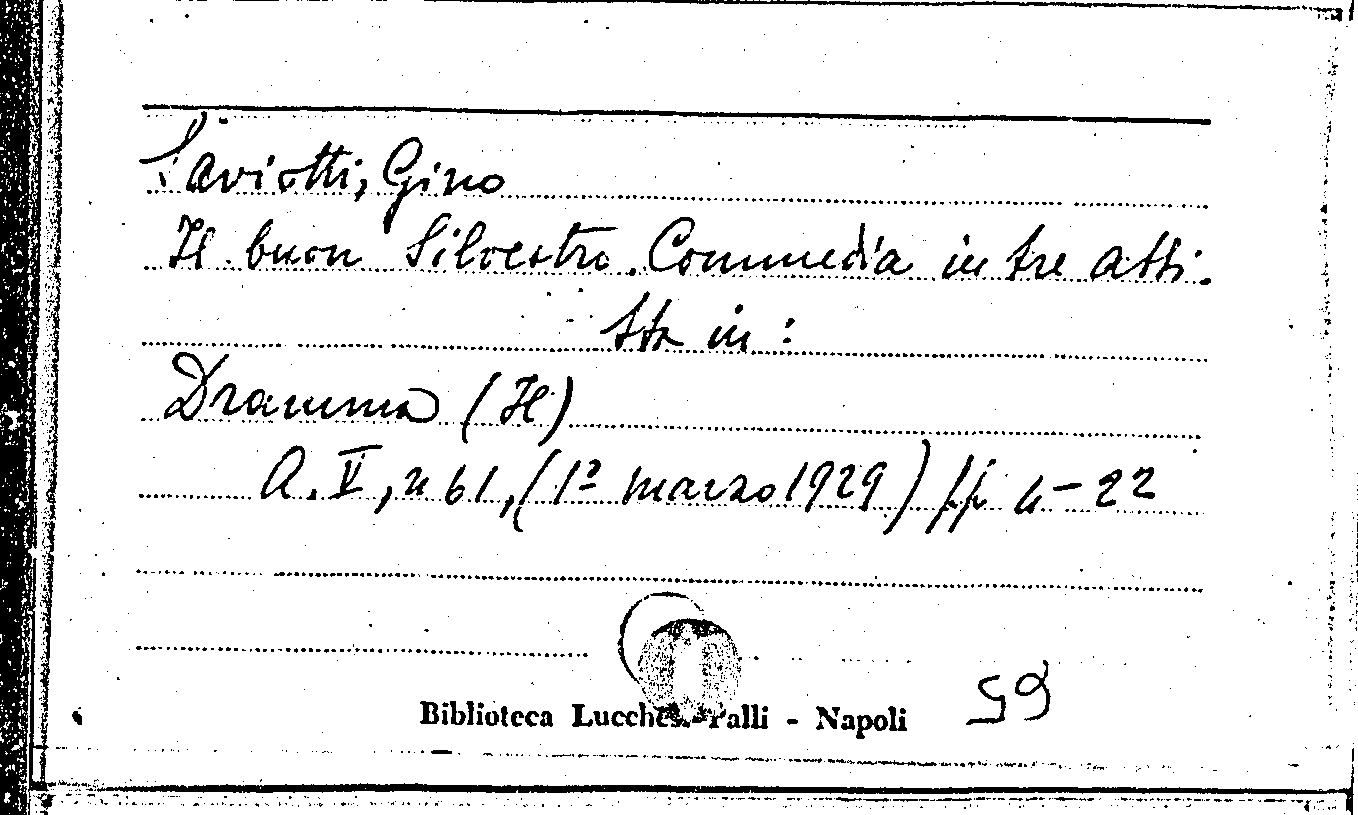 Saviotti, Gino
Il buon Silvestro. Commedia in tre atti.
Sta in:
Dramma (Il)
A. V, n 61, (1º marzo 1929) pp 4-22
Biblioteca Lucchesi Palli - Napoli
59